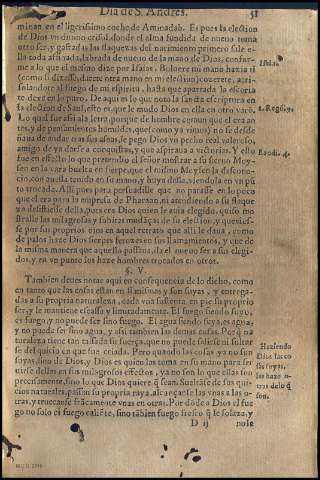 Dia de S. Andres. 51
minan en el ligerissimo coche de Aminadab. Es pues la eleccion
de Dios vn diuino crisol, donde el alma fundida de nueuo toma
otro ser, y gastadas las flaquezas del nacimiento primero sale ella
toda afinada, labrada de nueuo de la mano de Dios, conforme
a lo que el mismo dize por Isaias. Boluere mi mano hazia ti
Isai. 1.
(como si dixesse, dacere otra mano en mi eleccion) cozerete,
afinandote al fuego de mi espiritu, hasta que apartada la escoria
te dexe en lo puro. De aqui es lo que nota la santa escritura en
la eleccion de Saul, esto es, que le mudo Dios en ella en otro varō.
1. Reg. 10.
Lo qual fue assi a la letra, porque de hombre comun que el era antes,
y de pensamientos humildes, que (como ya vimos) no se desdeñaua
de andar tras sus asnas, le pego Dios vn pecho real valeroso,
amigo de yr darse a conquistas, y que aspiraua a victorias. Y esto
fue en efecto lo que pretendio el señor mostrar a su sieruo Moysen
Exod. 4.
en la vara buelta en sierpe, que el mismo Moysen la desconocio,
con auerla tenido en su mano, y huya della, viendola en vn pūto
trocada. Alli pues para persuadille que no parasse en lo poco
que era para la empresa de Pharaon, ni atendiendo a su flaqueza
desistiesse della, pues era Dios quien le auia elegido, quiso mostralle
las milagrosas y subitas mudāças de su eleccion, y que viesse
por sus proprios ojos en aquel retrato que alli le daua, como
de palos haze Dios sierpes feroces en sus llamamientos, y que de
la misma manera que aquello passaua, da el nueuo ser a sus elegidos,
y en vn punto los haze hombres trocados en otros.
§. V.
Tambien deues notar aqui en consequencia de lo dicho, como
en tanto que las cosas estan en si mismas y son suyas, y entregadas
a su propria naturaleza, cada vna sustenta en pie su proprio
ser, y le mantiene escassa y limitadamente. El fuego siendo suyo,
es fuego, y no puede ser sino fuego. El agua siendo suya, es agua,
y no puede ser sino agua, y assi tambien las demas cosas. Porq̄ naturaleza
tiene tan tassada su fuerça, que no puede salirse ni soltarse
del quicio en que fue criada. Pero quando las cosas ya no son
Haziendo
suyas, sino de Dios, y Dios es quien las toma en su mano para seruirse
Dios las cosas
dellas en sus milagrosos effectos, ya no son lo que ellas son
suyas,
precisamente, sino lo que Dios quiere q̄ sean. Sueltāse de sus quicios
las haze otras
naturales, passan su propria raya, alcançanse las vnas a las otras,
delo q̄
y truecanse frācamente vnas en otras. Por dōde a Dios el fuego
son.
no solo es fuego caliēte, sino tābien fuego fresco q̄ le solaza, y
D ij
nole